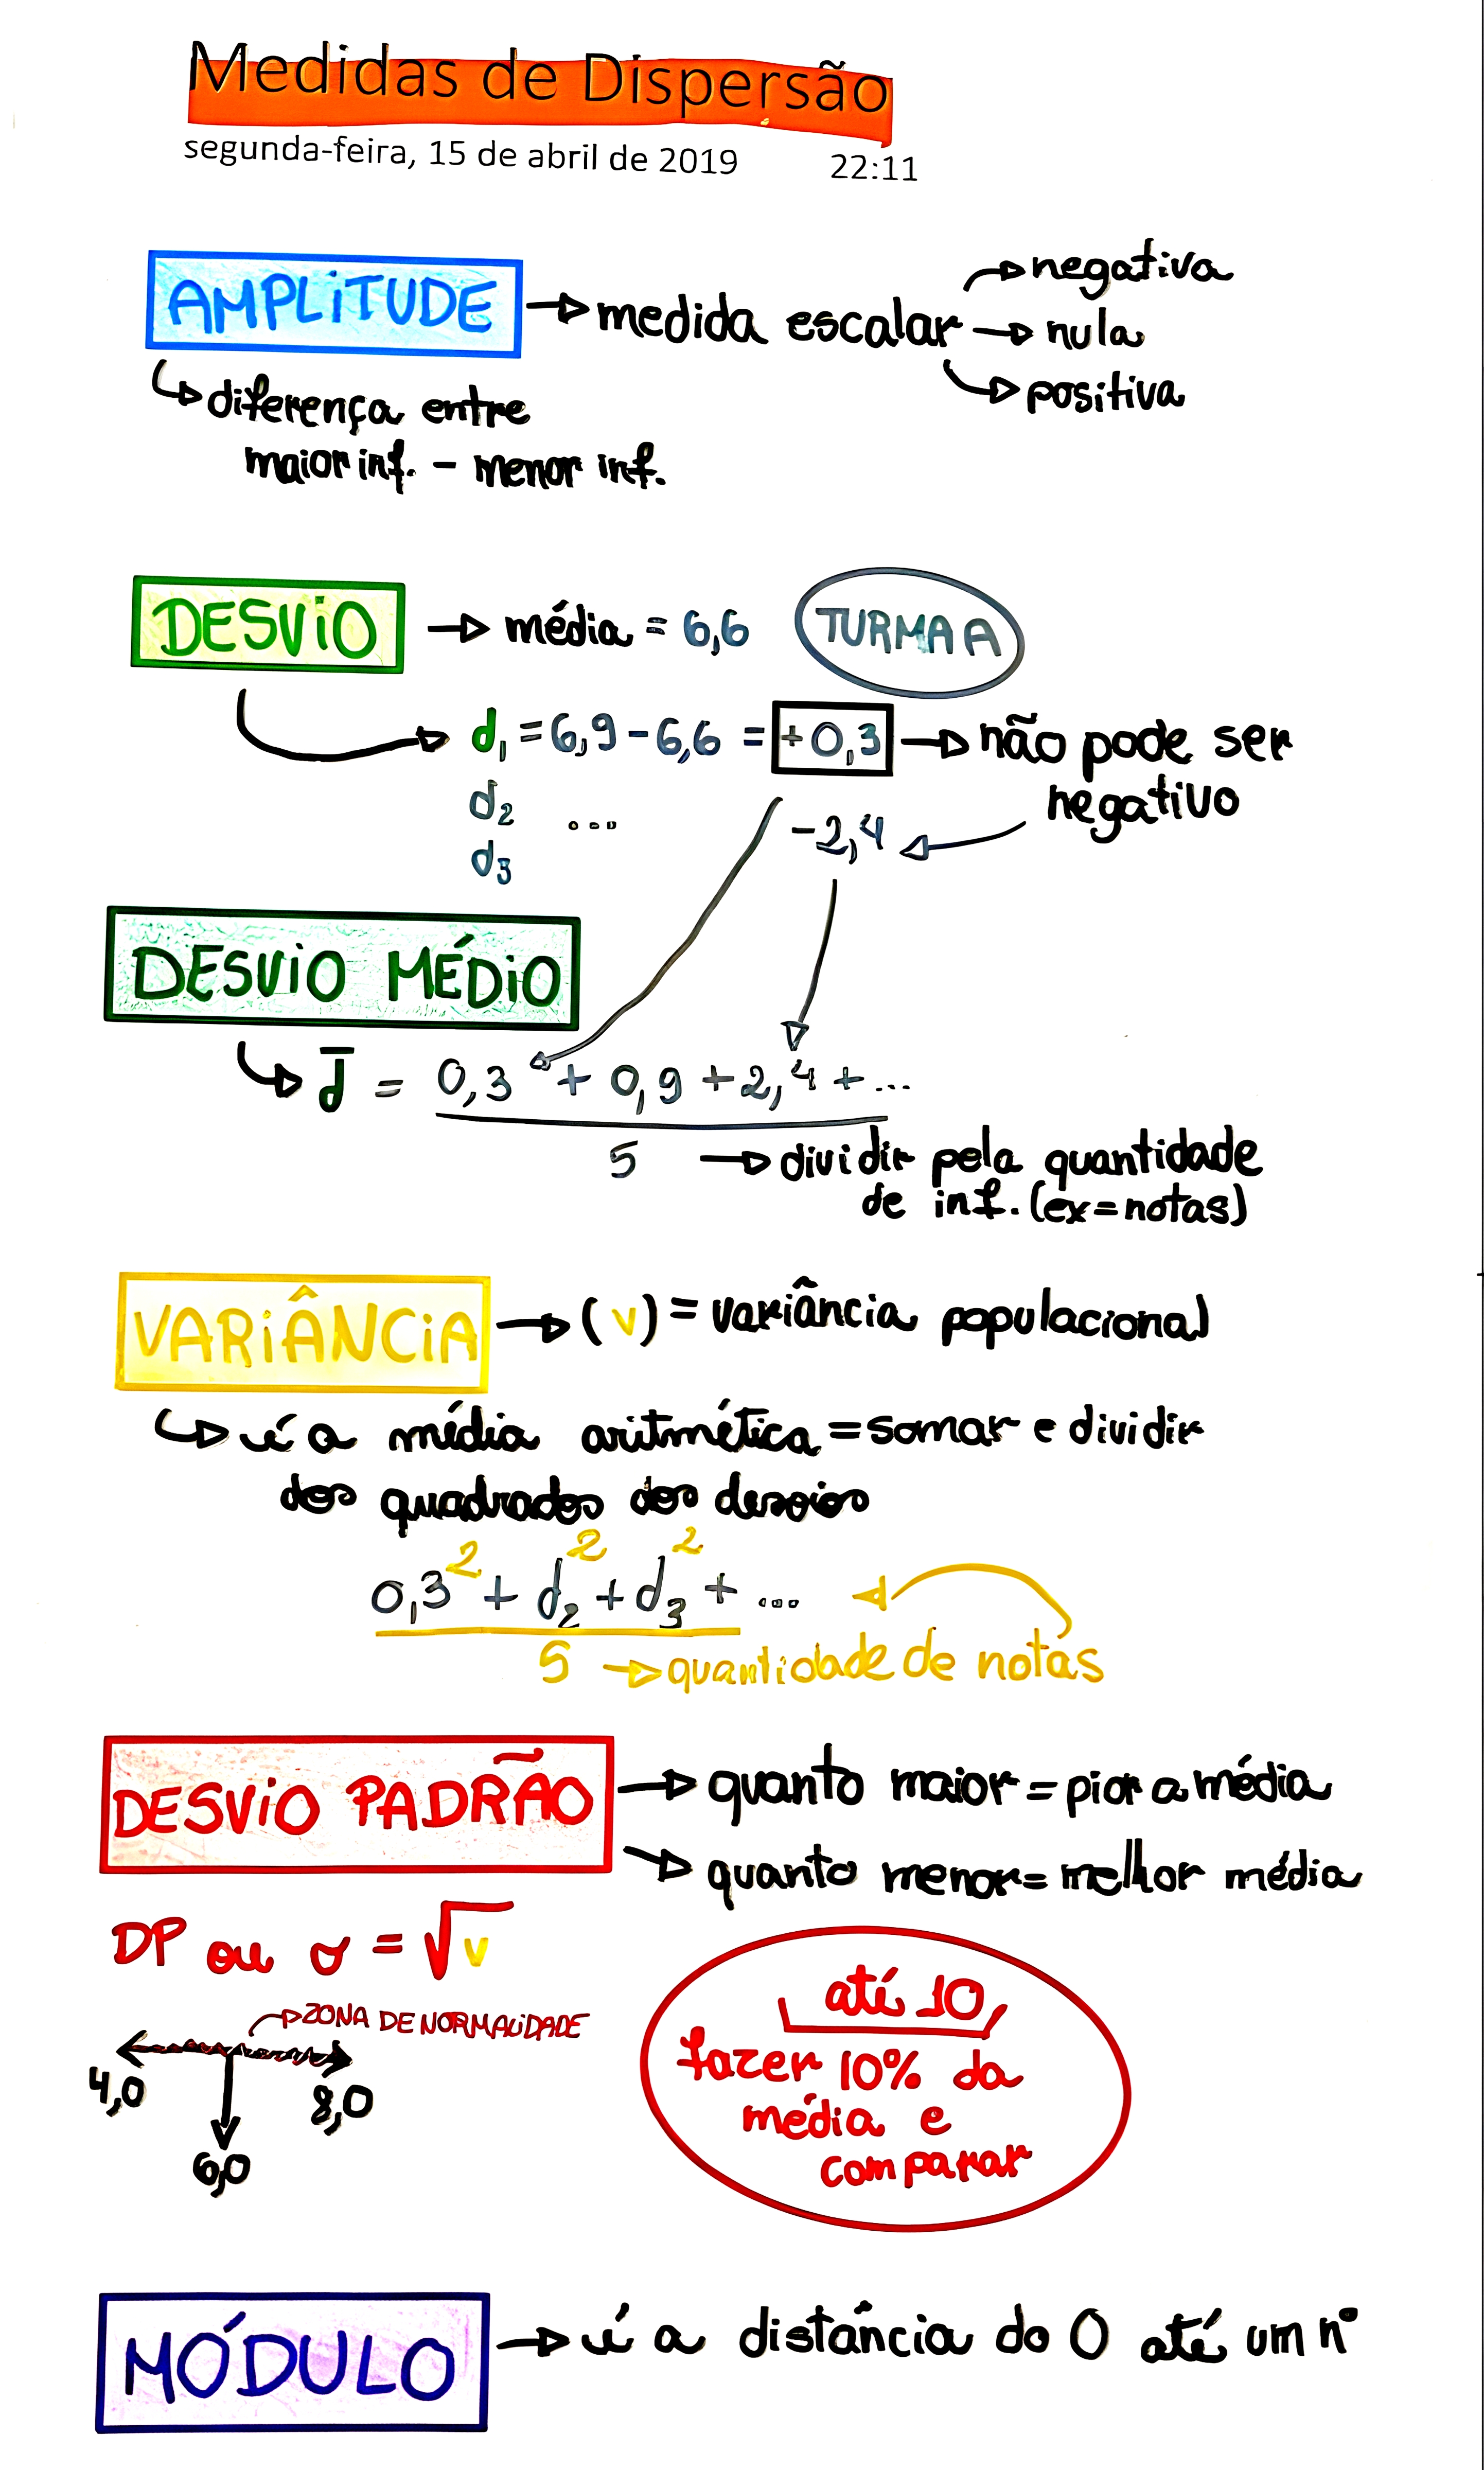 Medidas de Dispersão
segunda-feira, 15 de abril de 2019 22:11
AMPLITUDE → medida escalar → negativa
→ nula
→ positiva
↳ diferença entre
maior inf. - menor inf.
DESVIO → média = 6,6 TURMA A
d₁ = 6,9 - 6,6 = +0,3 → não pode ser
negativo
d₂ ... -2,4
d₃
DESVIO MÉDIO
↳ d̅ = 0,3 + 0,9 + 2,4 + ...
5 → dividir pela quantidade
de inf. (ex = notas)
VARIÂNCIA → (v) = variância populacional
↳ é a média aritmética = somar e dividir
dos quadrados dos desvios
0,3² + d₂² + d₃² + ...
5 → quantidade de notas
DESVIO PADRÃO → quanto maior = pior a média
→ quanto menor = melhor média
DP ou σ = √v
→ ZONA DE NORMALIDADE
4,0 8,0
6,0
até 10
fazer 10% da
média e
comparar
MÓDULO → é a distância do 0 até um nº